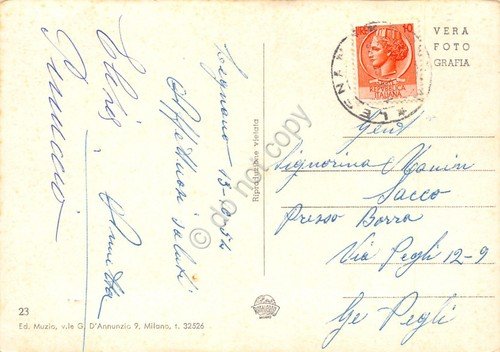 Legnano 13-10-54
Affettuosi saluti
Annita
Pinuccio
VERA
FOTO
GRAFIA
10
REPUBBLICA
ITALIANA
Gent
Signorina
Sacco
Presso Borra
Via Pegli 12-9
Ge Pegli
Riproduzione vietata
do not copy
23
Ed. Muzio, v.le G. D'Annunzio 9, Milano, t. 32526